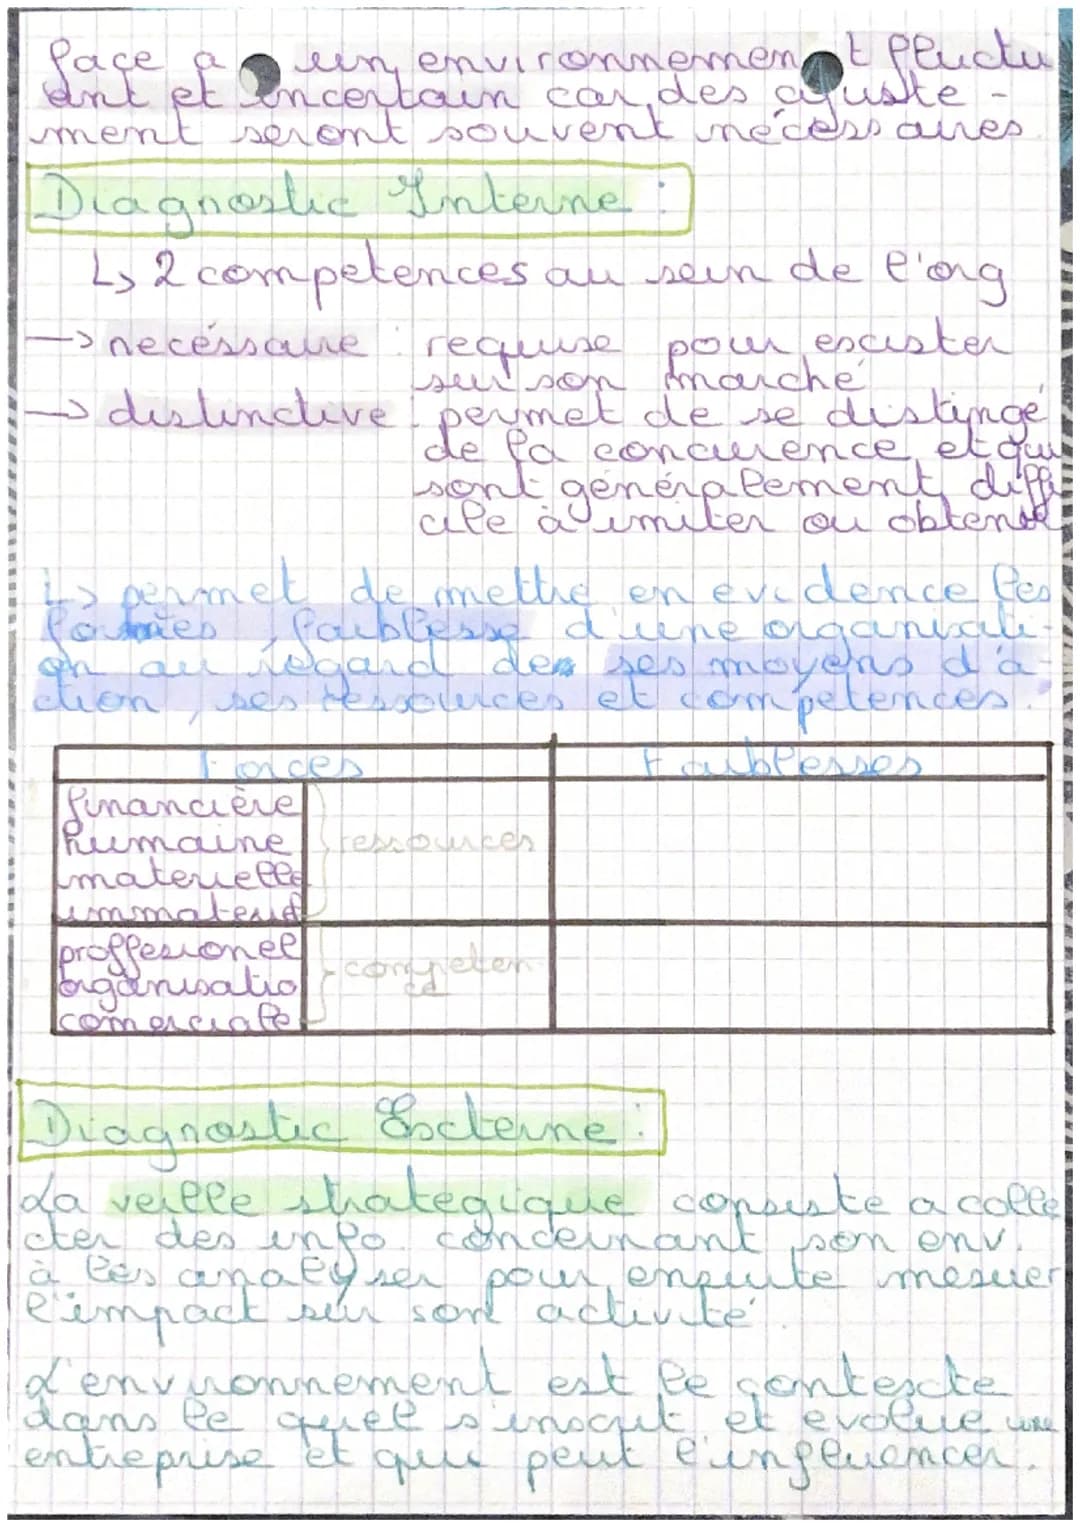 face a un environnement fluctu
ant et incertain car des ajuste-
ment seront souvent nécessaires
Diagnostic Interne :
↳ 2 competences au sein de l'org
→ necéssaire : requise pour exister
sur son marché
→ distinctive : permet de se distingé
de la concurence et qui
sont généralement diffi
cile à imiter ou obtenir
↳ permet de mettre en evidence les
forces, faiblesse d'une organisati-
on au regard de ses moyens d'a-
ction, ses ressources et competences.
Forces Faiblesses
financière
humaine ressources
materielle
immateriel
proffesionel
organisatio competen
ce
comerciale
Diagnostic Externe :
La veille strategique consiste a colle
cter des info concernant son env.
à les analyser pour ensuite mesuer
l'impact sur son activité.
L'environnement est le contexte
dans le quel s'inscrit et evolue une
entreprise et qui peut l'influencer.